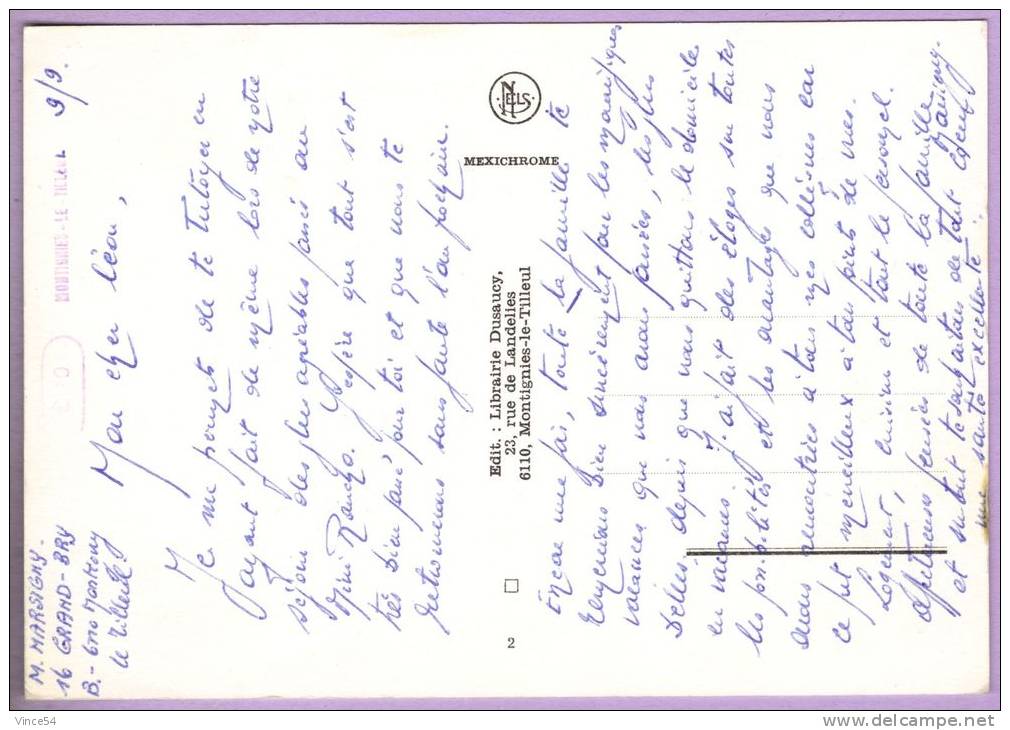 M. MARSIGNY.
16 GRAND-BRY
B.-6110 Montigny
le Tilleul
MONTIGNIES-LE-TILLEUL
9/9.
Mon cher Léon,
Je me permets de te tutoyer en
ayant fait de même lors de votre
séjour des plus agréables passé au
Mini Rancho. J'espère que tout s'est
très bien passé pour toi et que nous te
retrouverons sans faute l'an prochain.
Encore une fois, toute la famille te
remercions bien sincèrement pour les magnifiques
vacances que nous avons passées, les plus
belles depuis que nous quittons le domicile
en vacances. J'ai fait des éloges sur toutes
les possibilités et les avantages que nous
avons rencontrés à tous mes collègues car
ce fut merveilleux à tous points de vues.
Logement, cuisine et tout le personnel.
Affectueuses pensées de toute la famille
et surtout te souhaitons de tout cœur
une santé excellente.
Marsigny.
NELS
MEXICHROME
Edit. : Librairie Dusaucy,
23, rue de Landelies
6110, Montignies-le-Tilleul
2
Vince54
www.delcampe.net